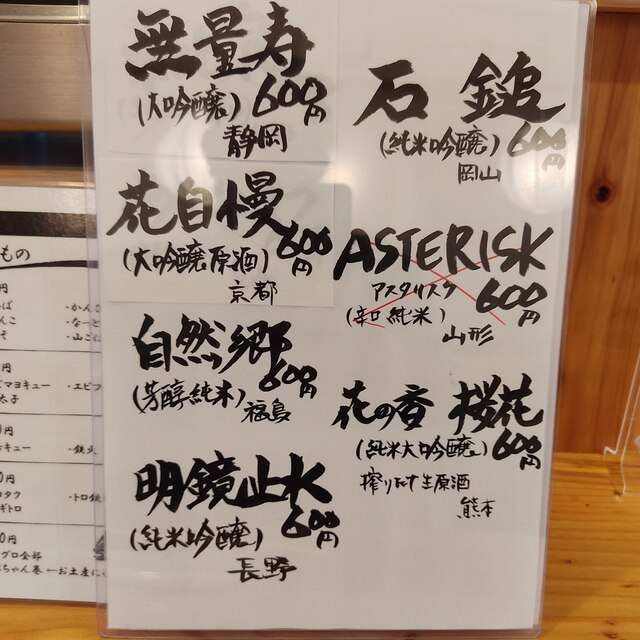 無量寿
(大吟醸) 600円
静岡
花自慢
(大吟醸原酒) 600円
京都
自然郷
(芳醇純米) 600円
福島
明鏡止水
(純米吟醸) 600円
長野
石鎚
(純米吟醸) 600円
岡山
ASTERISK
アスタリスク 600円
(辛口純米)
山形
花の香 桜花
(純米大吟醸) 600円
搾りたて生原酒
熊本
もの
円
・かん
・なっ
・山ご
円
マヨキュー ・エビフ
太子
円
キュー ・鉄火
円
コタク ・トロ鉄
ギトロ
円
グロ全部
ちゃん巻 ←お土産に